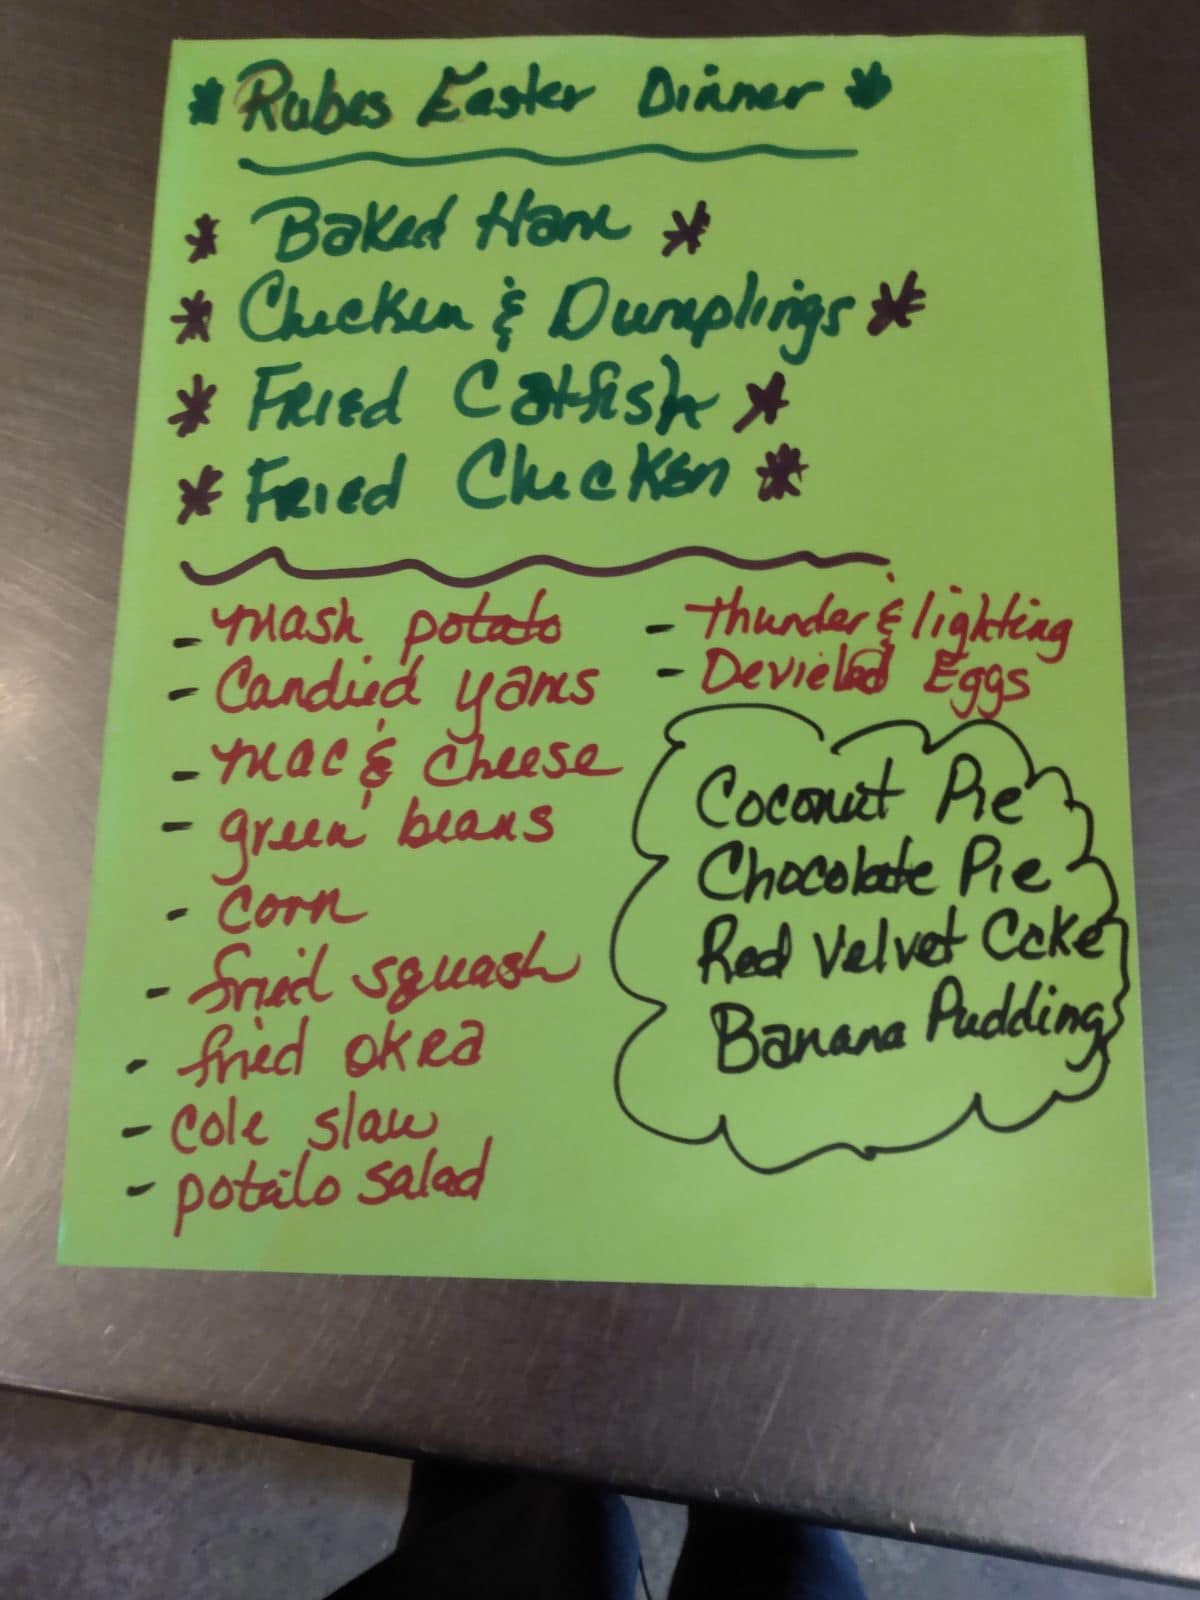 * Rubes Easter Dinner *
* Baked Ham *
* Chicken & Dumplings *
* Fried Catfish *
* Fried Chicken *
- mash potato
- Candied yams
- mac & cheese
- green beans
- corn
- fried squash
- fried okra
- cole slaw
- potato salad
- Thunder & lighting
- Devieled Eggs
Coconut Pie
Chocolate Pie
Red Velvet Cake
Banana Pudding